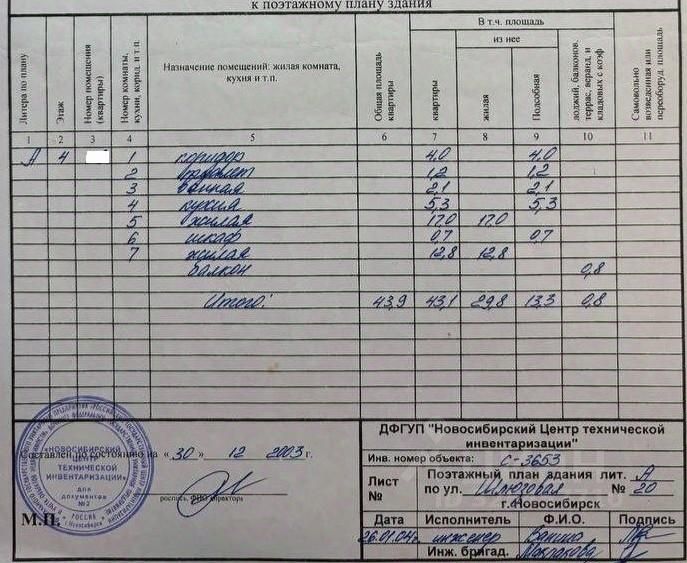 к поэтажному плану здания
Литера по плану
Этаж
Номер помещения (квартиры)
Номер комнаты, кухни, корид. и т.п.
Назначение помещений: жилая комната, кухня и т.п.
Общая площадь квартиры
В т.ч. площадь
из нее
квартиры
жилая
Подсобная
лоджий, балконов, террас, веранд, и кладовых с коэф
Самовольно возведенная или переоборуд. площадь
1 2 3 4 5 6 7 8 9 10 11
А 4 1 коридор 4,0 4,0
2 туалет 1,2 1,2
3 ванная 2,1 2,1
4 кухня 5,3 5,3
5 жилая 17,0 17,0
6 шкаф 0,7 0,7
7 жилая 12,8 12,8
балкон 0,8
Итого: 43,9 43,1 29,8 13,3 0,8
Составлен по состоянию на «30» 12 2003 г.
роспись, ФИО директора
М.П.
«НОВОСИБИРСКИЙ ЦЕНТР ТЕХНИЧЕСКОЙ ИНВЕНТАРИЗАЦИИ»
для документов
№2
РОССИЯ
г.Новосибирск
ДФГУП "Новосибирский Центр технической
инвентаризации"
Инв. номер объекта: С-3653
Лист №
Поэтажный план здания лит. А
по ул. Шлюзовая № 20
г.Новосибирск
Дата Исполнитель Ф.И.О. Подпись
26.01.04г инженер Ванина
Инж. бригад. Макракова